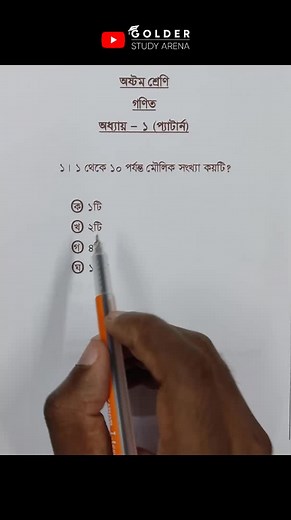 GOLDER
STUDY ARENA
অষ্টম শ্রেণি
গণিত
অধ্যায় – ১ (প্যাটার্ন)
১। ১ থেকে ১০ পর্যন্ত মৌলিক সংখ্যা কয়টি?
ক ১টি
খ ২টি
গ ৪
ঘ ১